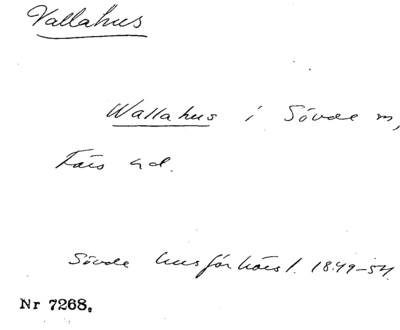 Vallahus
Wallahus i Sövde sn,
Färs hd.
Sövde husförhörsl. 1849-54.
Nr 7268.